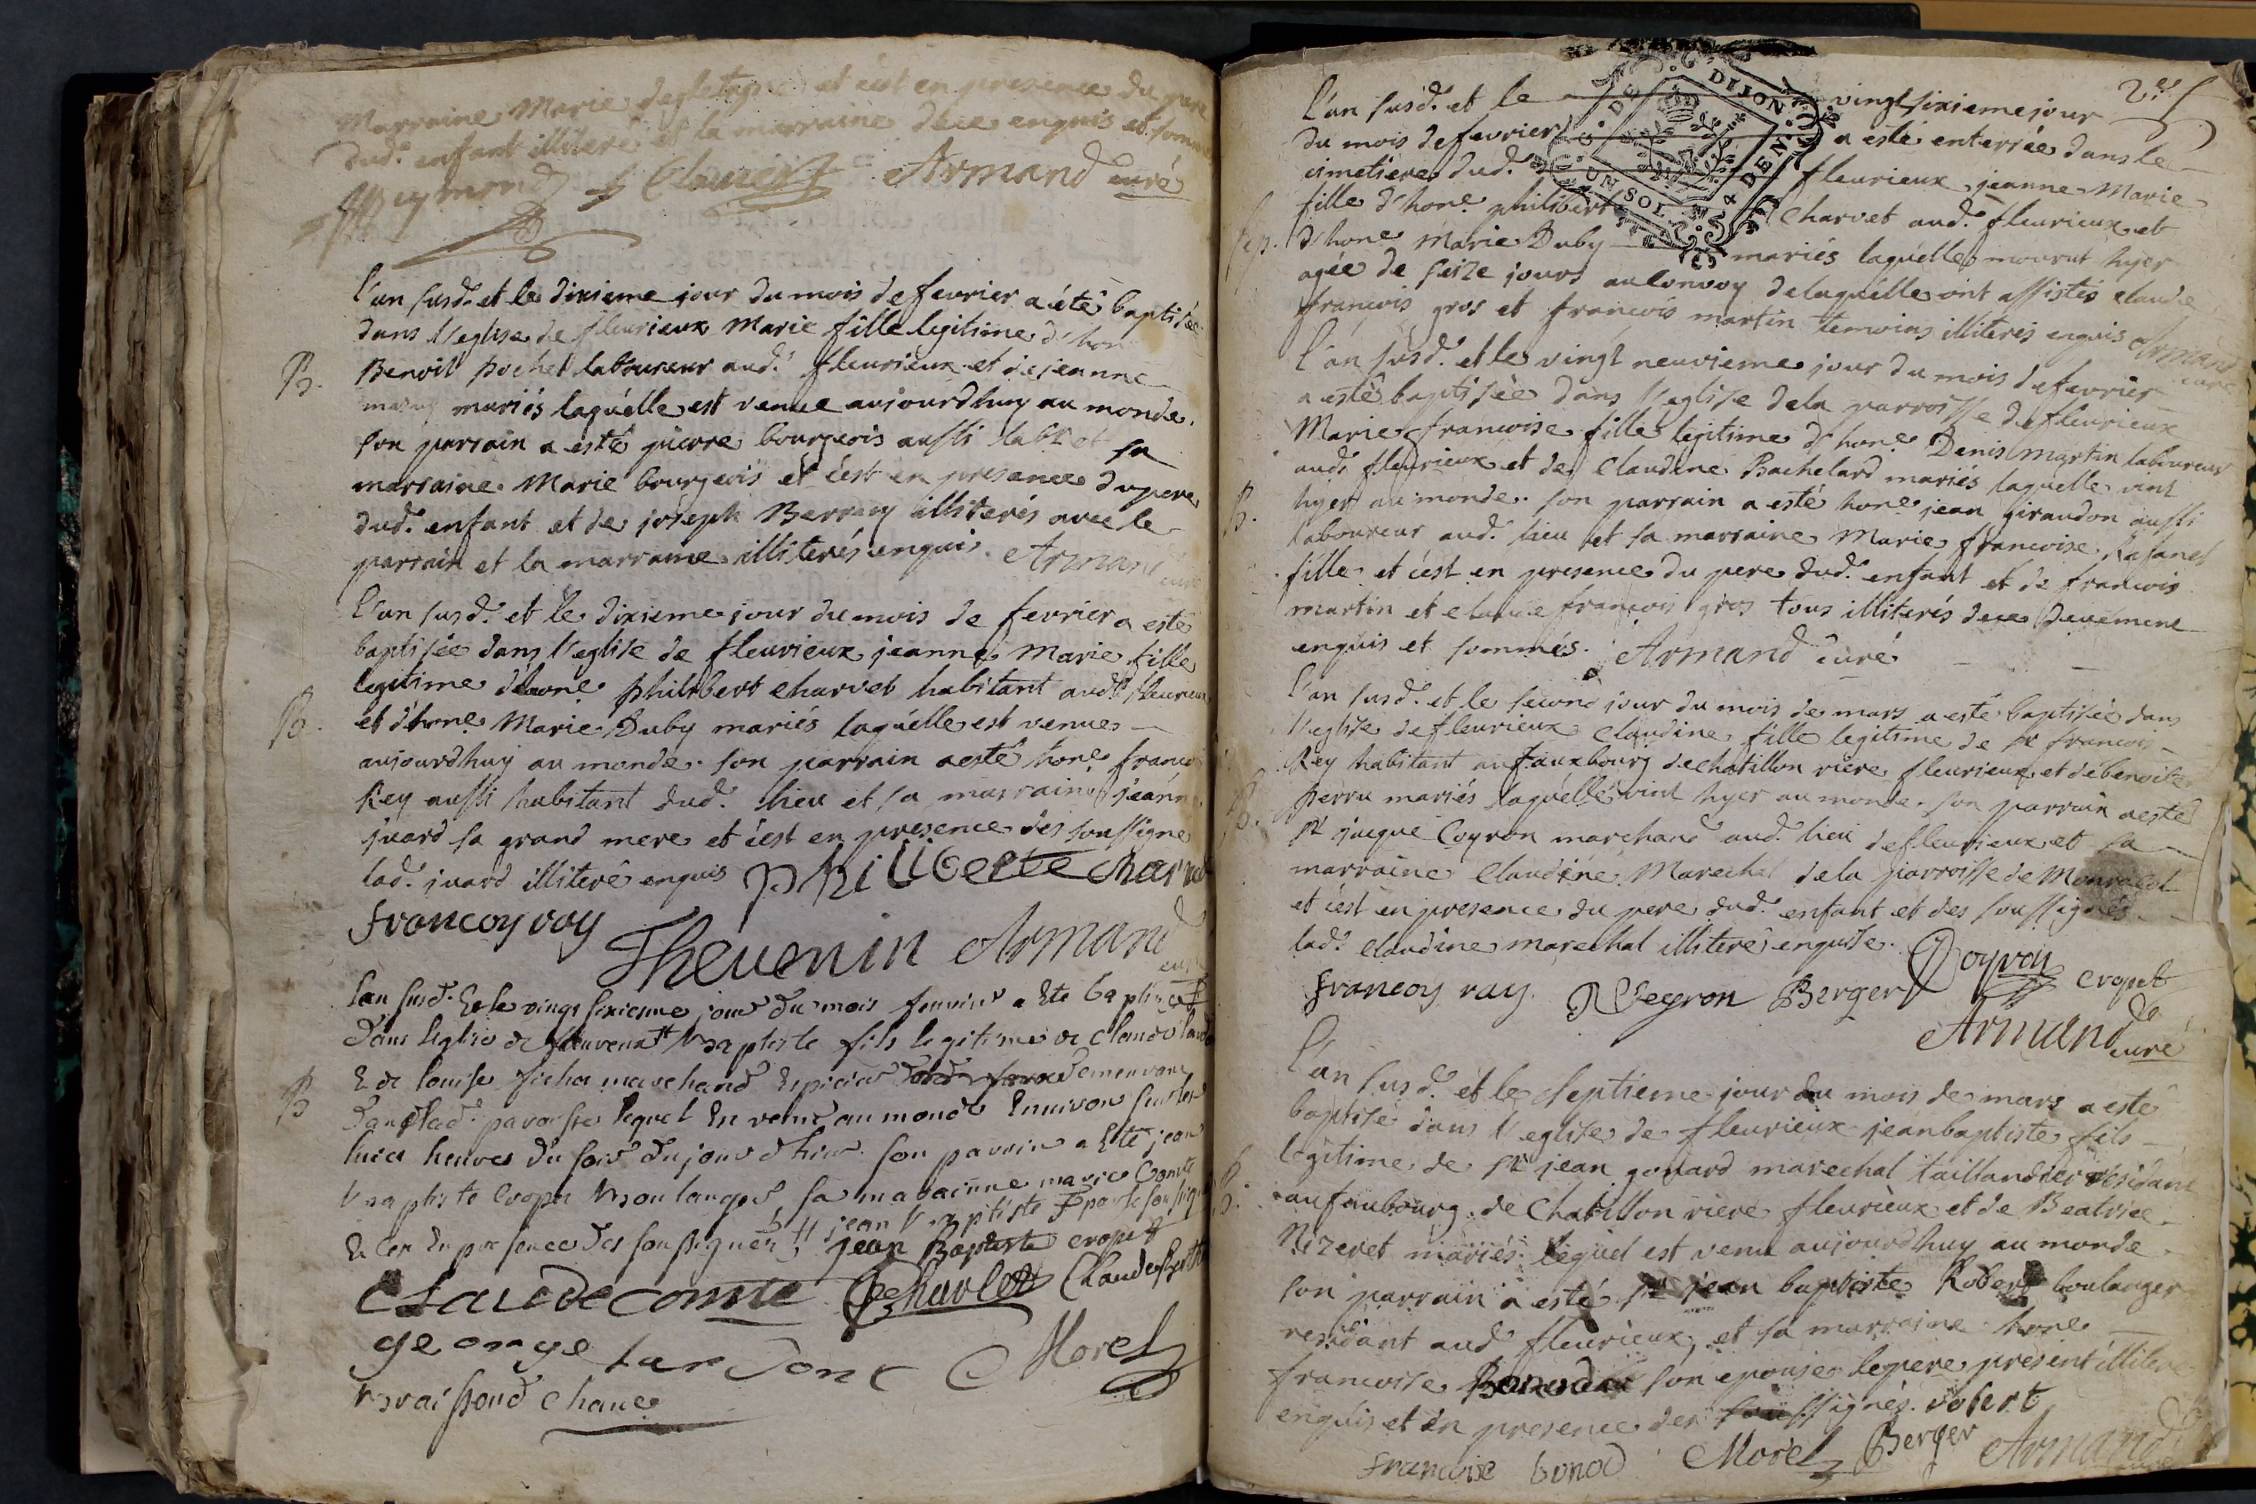 Marraine Marie et c'est en presence du pere
dud. enfant illiteré et la marraine de ce enquis et sommé
Armand curé
l'an susd. et le dixieme jour du mois de fevrier a été baptisée
dans l'eglise de fleurieux Marie fille legitime d'hon
Benoit pochet laboureur aud. fleurieux et de jeanne
mariés laquélle est venue aujourdhuy au monde.
son parrain a esté pierre bourgeois aussi lab et sa
marraine Marie bourgeois et c'est en presance du pere
dud. enfant et de joseph illiterés avec le
parrain et la marraine illiterés enquis. Armand curé
l'an susd. et le dixieme jour du mois de fevrier a esté
baptisée dans l'eglise de fleurieux jeanne Marie fille
legitime d'hone philibert charvet habitant aud. fleurieux
et d'hone Marie Duby mariés laquélle est venue
aujourdhuy au monde. son parrain a esté hone francoi
Rey aussi habitant dud. lieu et sa marraine jeanne
juard sa grand mere et c'est en presence des soussigne
lad. juard illiteré enquis philiberte charvet
francoy ray Thevenin Armand curé
B.
B.
lan susd. Et le vingt sixiesme jour du mois fevrier a Eté baptizé
dans leglise de Baptiste fils legitime de Claude
Et de louise marchand Epicier demeurant
dans lad. paroisse lequel En venu au monde Environ sur les
huict heures du soir du jour d'hier. son parrain a Eté jean
Baptiste Cropet Boulanger sa maraine marie Comte
Et En presence des soussignés jean Baptiste cropet
B
Claude comte Charlet Claude
george Morel
l'an susd. et le vingt sixieme jour
du mois de fevrier a esté enterrée dans le
cimetiere dud. fleurieux jeanne Marie
fille d'hone philibert Charvet aud. fleurieux et
d'hone Marie Duby mariés laquélle mourut hyer
agée de seize jours au convoy de laquélle ont assistés claude
francois gros et francois martin temoins illiterés enquis Armand curé
DIJON
UN SOL
l'an susd. et le vingt neuvieme jour du mois de fevrier
a esté baptisée dans l'eglise de la parroisse de fleurieux
Marie francoise fille legitime d'hone Denis Martin laboureur
aud. fleurieux et de Claudine Bachelard mariés laquélle vint
hyer au monde. son parrain a esté hone jean giraudon aussi
laboureur aud. lieu et sa marraine Marie francoise
fille et c'est en presence du pere dud. enfant et de francois
martin et claude francois gros tous illiterés de ce deuement
enquis et sommés. Armand curé
B.
l'an susd. et le second jour du mois de mars a esté baptisée dans
l'eglise de fleurieux Claudine fille legitime de sr francois
Rey habitant au fauxbourg de chatillon riere fleurieux et de benoite
perru mariés laquélle vint hyer au monde. son parrain a esté
sr jacque Coyron marchand aud. lieu de fleurieux et sa
marraine Claudine Marechal de la parroisse de
et c'est en presence du pere dud. enfant et des soussignés
lad. claudine marechal illiteré enquise.
francoy ray. Veyron Berger Coyron cropet
Armand curé
l'an susd. et le septieme jour du mois de mars a esté
baptisé dans l'eglise de fleurieux jeanbaptiste fils
legitime de sr jean gonard marechal taillandier residant
au faubourg de Chatillon riere fleurieux et de Beatrice
Nizeret mariés lequel est venu aujourdhuy au monde
son parrain a esté sr jean baptiste Robert boulanger
residant aud. fleurieux, et sa marraine hone
francoise son epouse le pere present illiteré
enquis et en presence des soussignés. robert
francoise bonod Morel Berger Armand curé